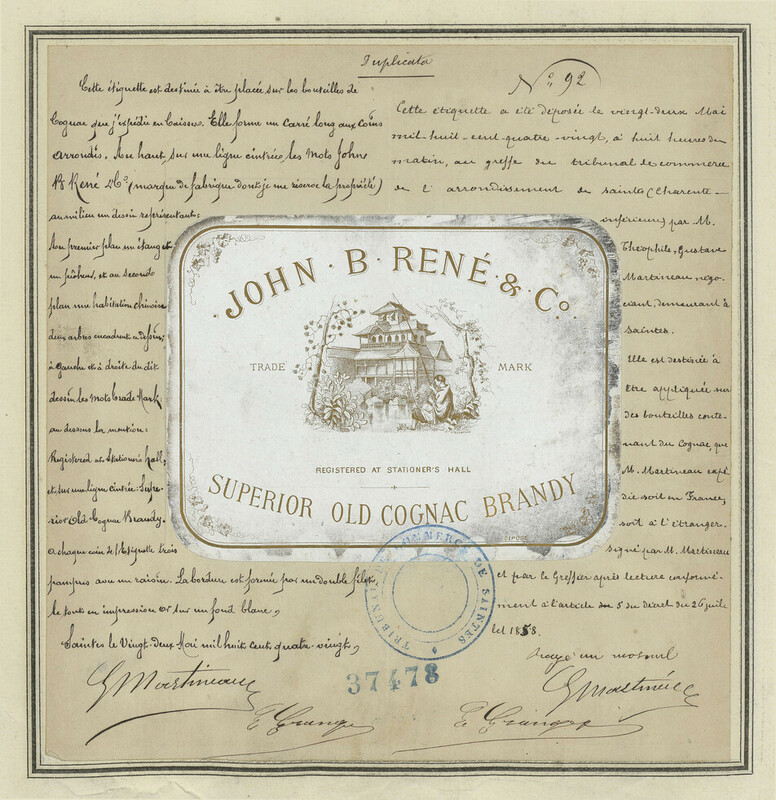 Duplicata
Cette étiquette est destinée à être placée sur les bouteilles de
Cognac que j'expédie en Caisses. Elle forme un Carré long aux coins
arrondis. En haut, sur une ligne cintrée les Mots John
B René & Co (marque de fabrique dont je me réserve la propriété)
au milieu un dessin représentant:
un premier plan un étang et
un pêcheur, et au second
plan une habitation chinoise
deux arbres encadrent ce dessin;
à gauche et à droite du dit
dessin les Mots Trade Mark
au dessous la mention:
Registered at Stationer's hall,
et sur une ligne cintrée: Supe-
rior Old Cognac Brandy.
a chaque coin de l'Etiquette trois
pampres avec un raisin. La bordure est formée par un double filet,
le tout en impression or sur un fond blanc,
Saintes le Vingt-deux Mai mil huit cent quatre-vingt,
GMartineau
E Granger
No. 92
Cette étiquette a été déposée le vingt-deux Mai
mil-huit-cent-quatre-vingt, à huit heures du
matin, au greffe du tribunal de commerce
de l'arrondissement de Saintes (Charente-
inférieure) par M.
Théophile, Gustave
Martineau, négo-
ciant, demeurant à
Saintes.
Elle est destinée à
être appliquée sur
des bouteilles conte-
nant du Cognac, que
M. Martineau expé
die soit en France,
soit à l'étranger.
Signé par M. Martineau
et par le Greffier après lecture conformé-
ment à l'article 5 du décret du 26 juil-
let 1858.
Rayé un mot nul
GMartineau
E Granger
JOHN · B · RENÉ · & · Co.
TRADE MARK
REGISTERED AT STATIONER'S HALL
SUPERIOR OLD COGNAC BRANDY
DÉPOSÉ
TRIBUNAL DE COMMERCE DE SAINTES
37478